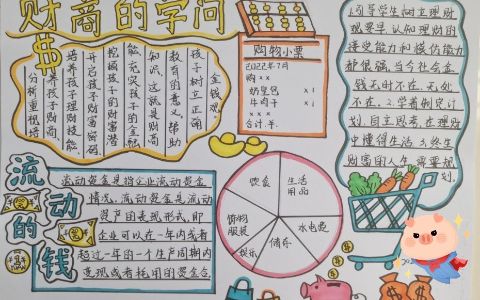 财商的学问
分析重视培
养孩子财商
培养孩子理财技能
开启孩子财富密码
挖掘孩子的财富潜
能充实孩子的金融
知识,这就是财商
教育的意义帮助
孩子树立正确
金钱观。
购物小票
2022年7月
购××
奶望包 ×1
牛肉干 ×1
××
合计:羊.
1.向导学生树立理财
观要早,认知理财的
接定能力和模仿能力
都很强,当今社会金
钱无时不在,无处
不在。2.学着制定计
划,自主思考,在理财
中懂得生活,终生
财富图人生需要规
划。
流动的钱
流动资金是指企业流动资金
情况,流动资金是流动
资产图表现形式,即
企业可以在一年内或者
超过一年的一个生产周期内
变现或者耗用的资金合
饮食
生活用品
水电费
储存
娱乐
购物服装